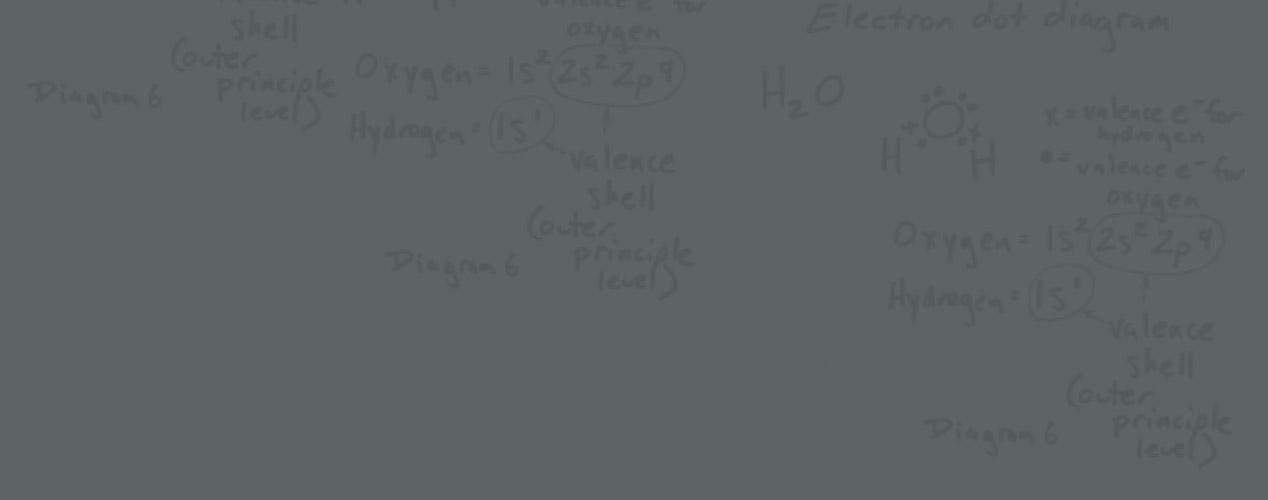 valence e⁻ for
shell
oxygen
(outer
principle
level)
Diagram 6
Oxygen = 1s² 2s² 2p⁴
Hydrogen = 1s¹
valence
shell
(outer
principle
level)
Diagram 6
Electron dot diagram
H₂O
O
H H
x = valence e⁻ for
hydrogen
• = valence e⁻ for
oxygen
Oxygen = 1s² 2s² 2p⁴
Hydrogen = 1s¹
valence
shell
(outer
principle
level)
Diagram 6